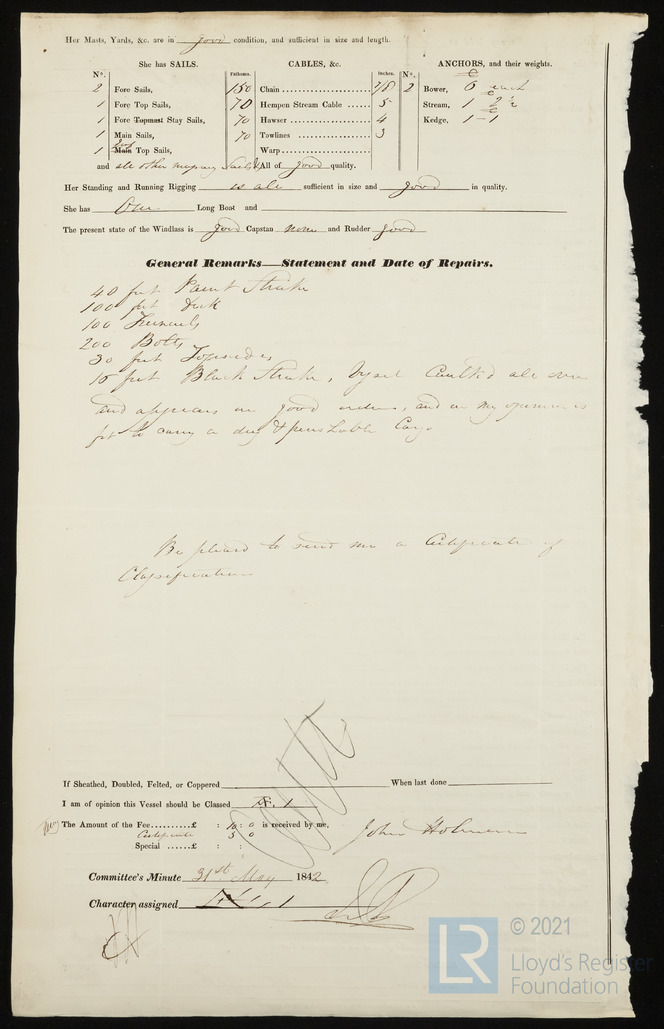 Her Masts, Yards, &c. are in good condition, and sufficient in size and length.
She has SAILS. CABLES, &c. ANCHORS, and their weights.
N°. Fathoms. Inches. N°.
2 Fore Sails, 150 Chain 7/8 2 Bower, 6 each
1 Fore Top Sails, 70 Hempen Stream Cable 5 Stream, 1
1 Fore Topmast Stay Sails, 70 Hawser 4 Kedge, 1 - 1
1 Main Sails, 70 Towlines 3
1 Main Top Sails, Warp
and all other Sails All of good quality.
Her Standing and Running Rigging is all sufficient in size and good in quality.
She has One Long Boat and
The present state of the Windlass is good Capstan none and Rudder good
General Remarks—Statement and Date of Repairs.
40 feet Paint Strake
100 feet Deck
100 Treenails
200 Bolts
30 feet Topsides
15 feet Black Strake, Vessel Caulk'd all over
and appears in good order, and in my opinion is
fit to carry a dry & perishable Cargo
Be pleased to send me a Certificate of
Classification
If Sheathed, Doubled, Felted, or Coppered When last done
I am of opinion this Vessel should be Classed Æ. 1
The Amount of the Fee £ : 10 : 0 is received by me,
Certificate 5 0 John Holman
Special £ : :
Committee's Minute 31st May 1842
Character assigned Æ 1
LR © 2021
Lloyd's Register
Foundation